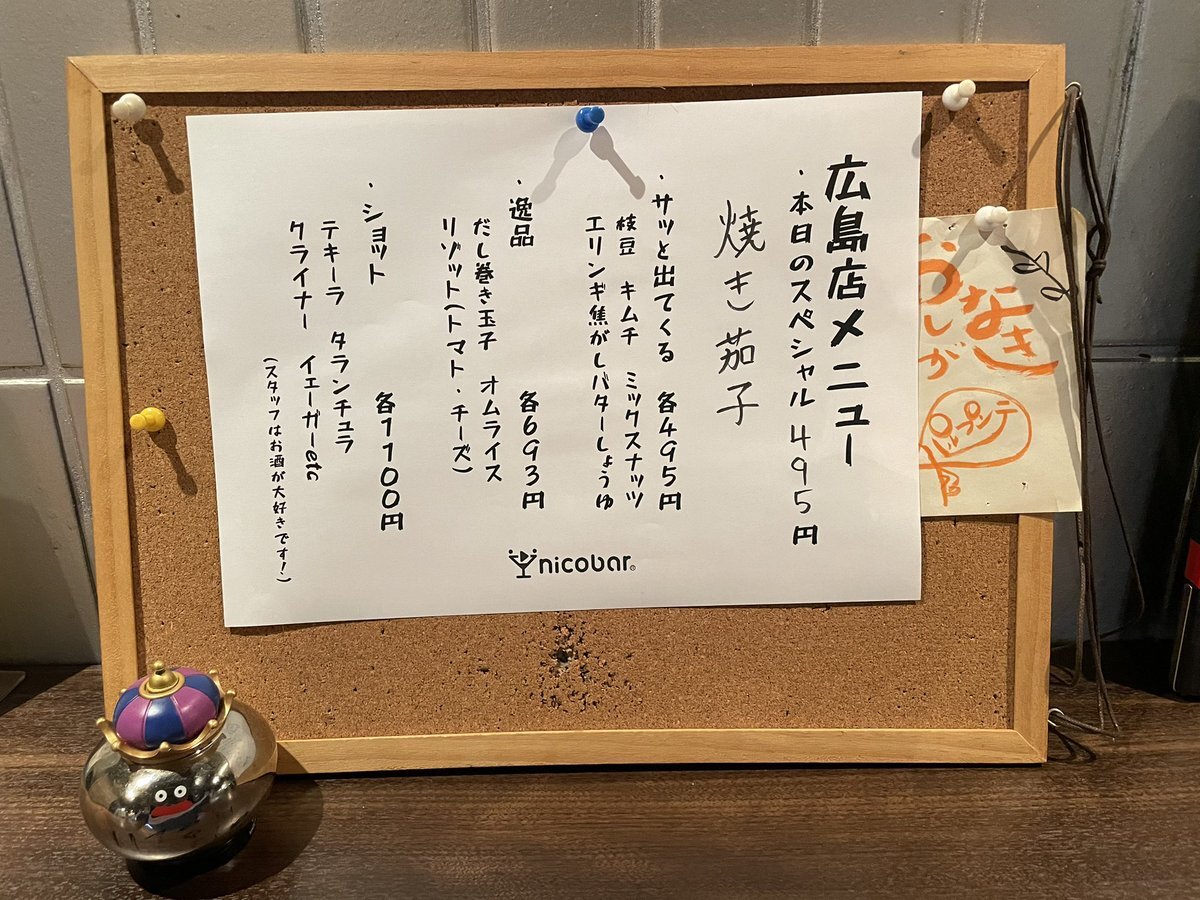 広島店メニュー
・本日のスペシャル495円
焼き茄子
・サッと出てくる 各495円
枝豆 キムチ ミックスナッツ
エリンギ焦がしバターしょうゆ
・逸品 各693円
だし巻き玉子 オムライス
リゾット(トマト・チーズ)
・ショット 各1100円
テキーラ タランチュラ
クライナー イエーガーetc
(スタッフはお酒が大好きです!)
nicobar®